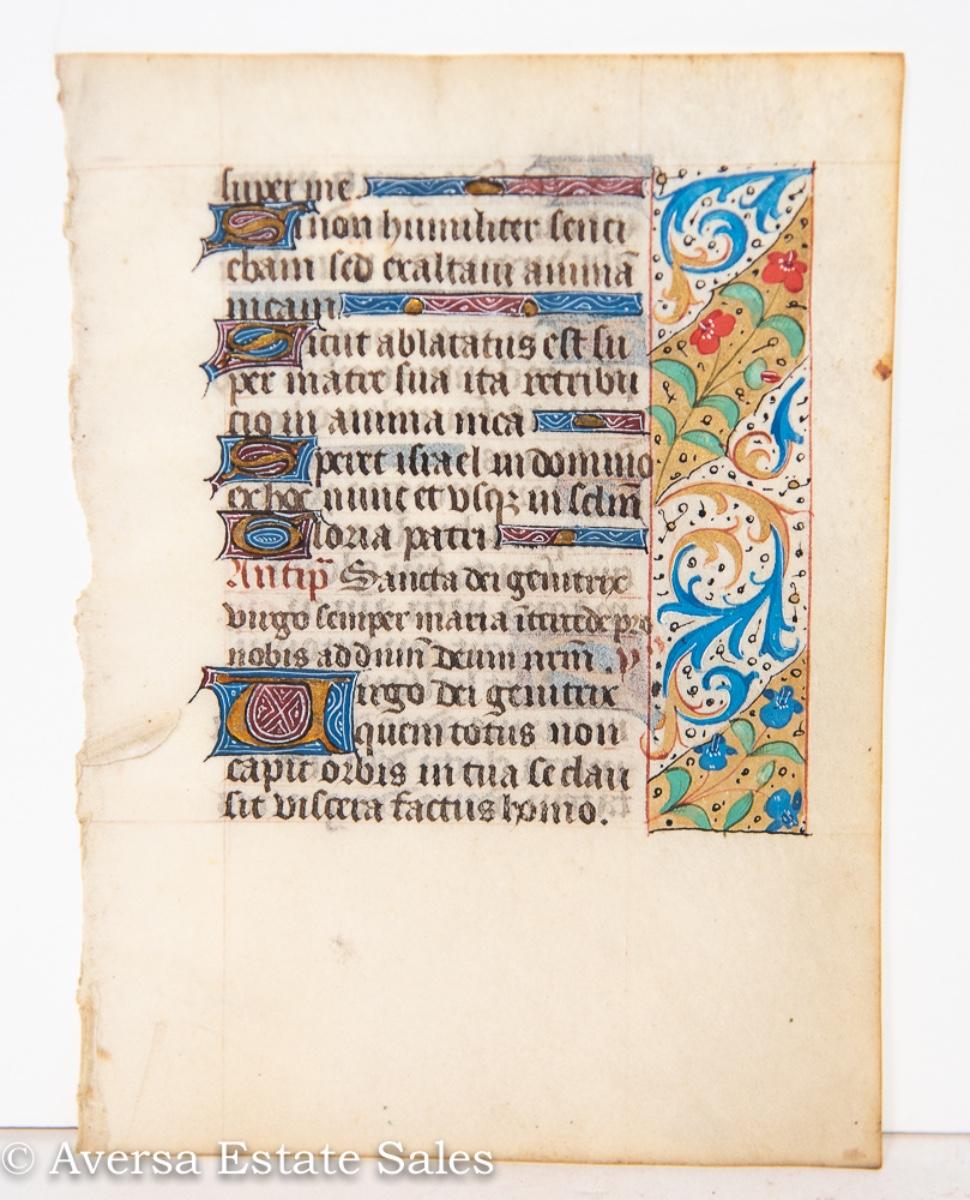 super me
Si non humiliter senti
ebam sed exaltaui animā
meam
Sicut ablatatus est su
per matre sua ita retribu
cio in anima mea
Speret israel in domino
ex hoc nunc et vsqꝫ in sclm̄
Gloria patri
Antip̄ Sancta dei genitrix
virgo semper maria īt̄ercede pro
nobis ad dnīm deum nrm̄. v̄
Uirgo dei genitrix
quem totus non
capit orbis in tua se clau
sit viscera factus homo.
© Aversa Estate Sales